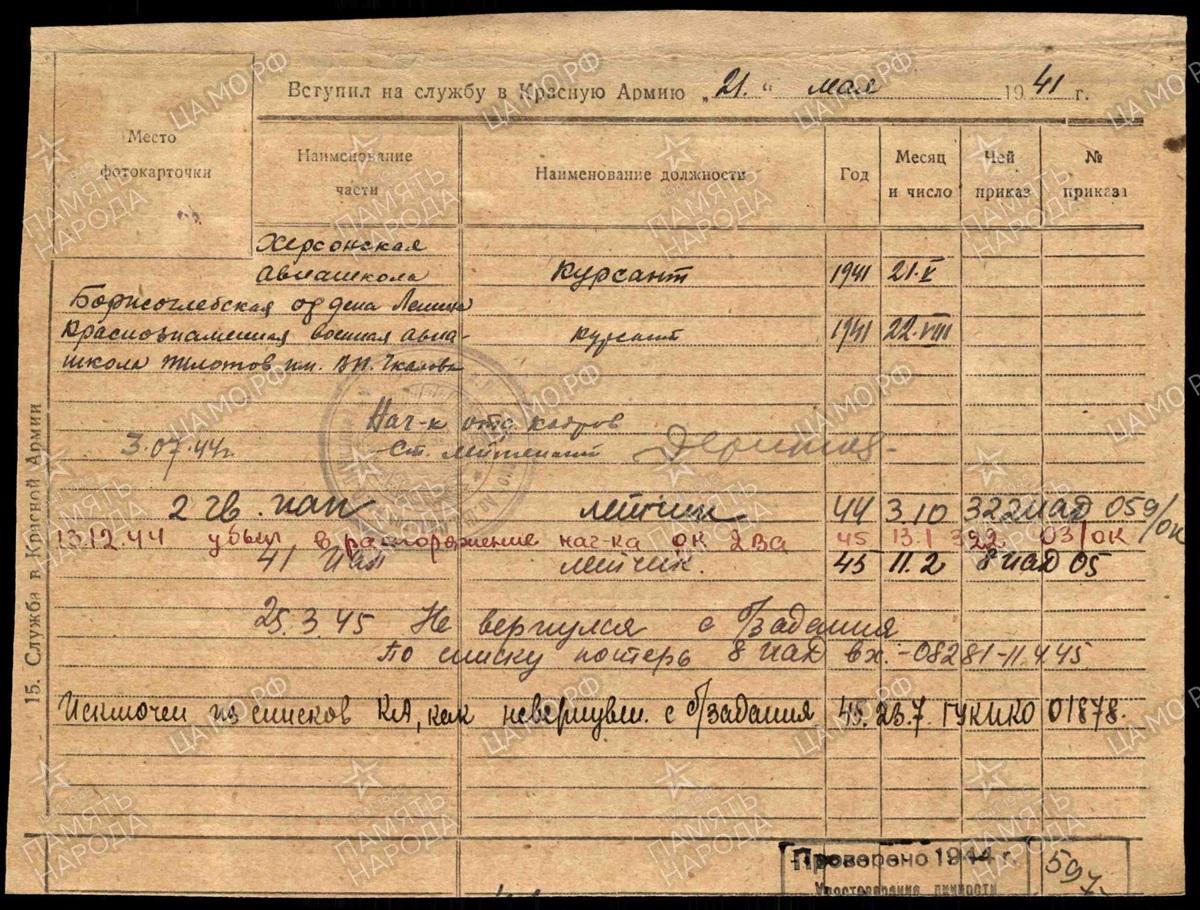 Вступил на службу в Красную Армию „21.“ мая 1941 г.
Место фотокарточки
Наименование части
Наименование должности
Год
Месяц и число
Чей приказ
№ приказа
Херсонская
авиашкола курсант 1941 21.V
Борисоглебская ордена Ленина
Краснознаменная военная авиа-
школа пилотов им. В.П. Чкалова курсант 1941 22.VIII
Нач-к отд кадров
3.07.44г. Ст. лейтенант
2 гв. иап летчик 44 3.10 322 ИАД 059/ок
13.12.44 убыл в распоряжение нач-ка ок 2ВА 45 13.1 322 03/ок
41 иап летчик. 45 11.2 8 ИАД 05
25.3.45 Не вернулся с б/задания
По списку потерь 8 ИАД вх.-08281-11.4.45
Исключен из списков КА, как невернувш. с б/задания 45. 23.7. ГУКНКО 01878.
15. Служба в Красной Армии
Проверено 1944 г.
Удостоверение личности
597.
ПАМЯТЬ НАРОДА
ЦА МО.РФ